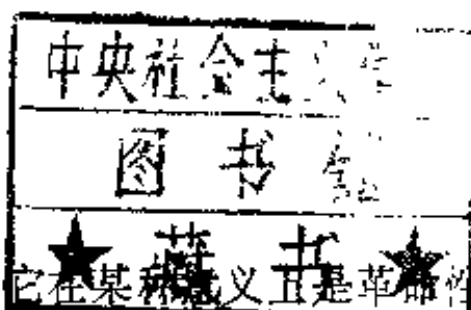 中央社会主义
图书馆
★藏书★
它在某种意义上是革命性